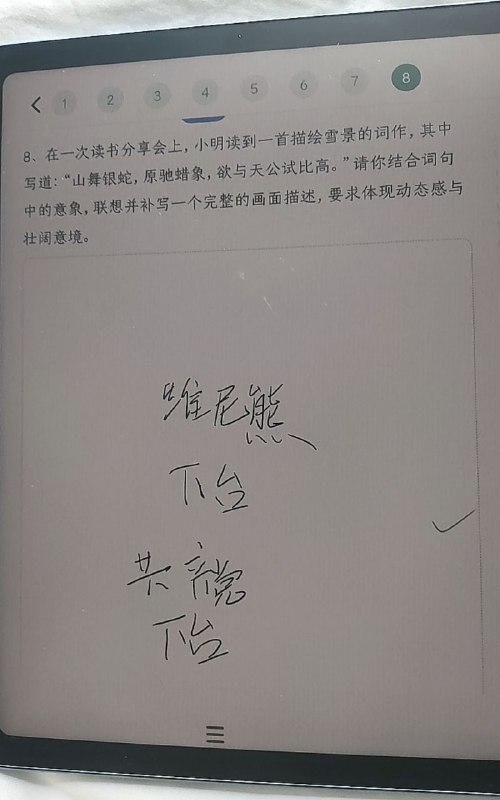 1 2 3 4 5 6 7 8
8、在一次读书分享会上，小明读到一首描绘雪景的词作，其中
写道：“山舞银蛇，原驰蜡象，欲与天公试比高。”请你结合词句
中的意象，联想并补写一个完整的画面描述，要求体现动态感与
壮阔意境。
维尼熊
下台
共产党
下台